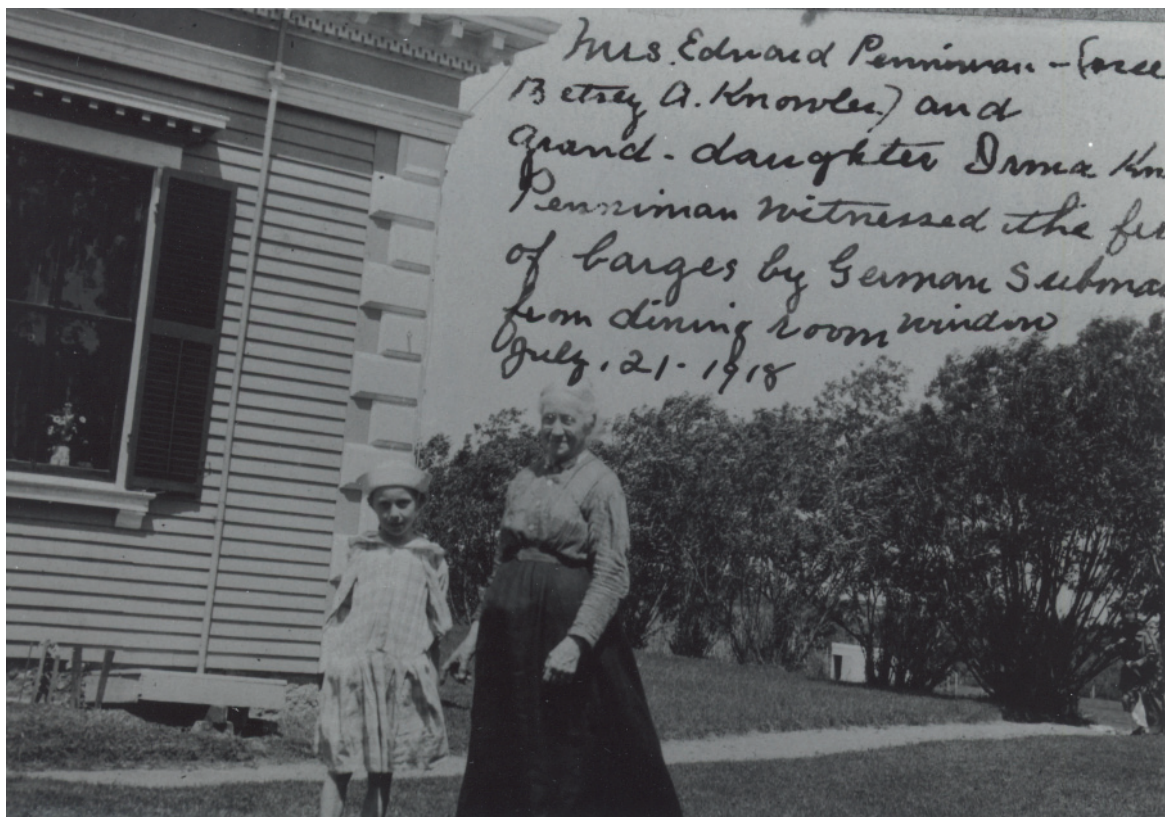 Mrs. Edward Penniman - (nee
Betsey A. Knowles) and
grand-daughter Irma Kn
Penniman witnessed the fir
of barges by German Submar
from dining room window
July. 21 - 1918